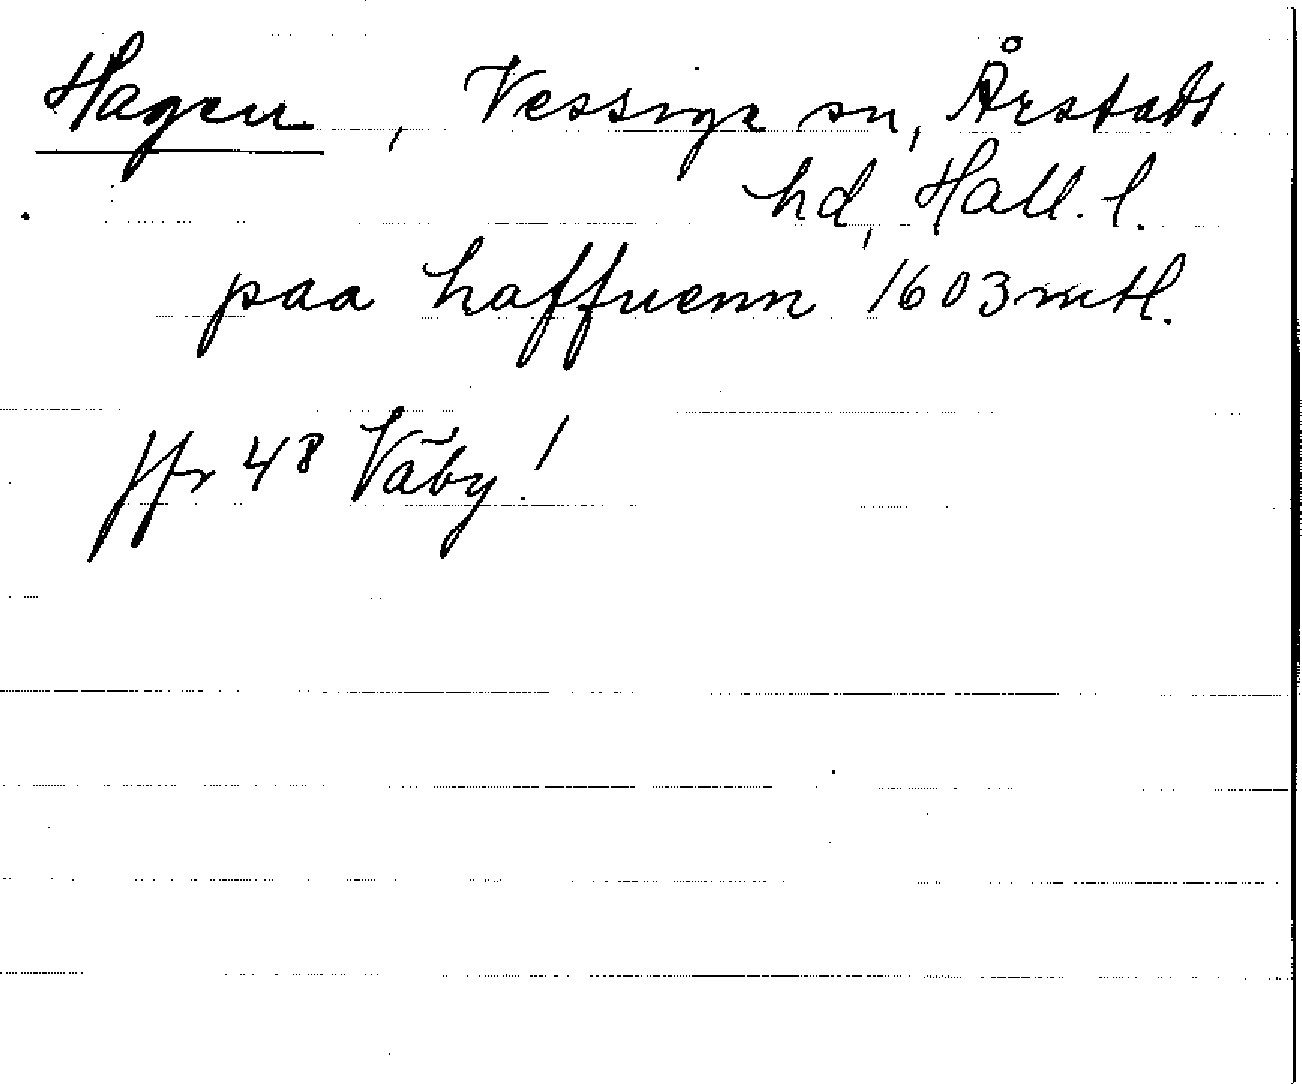 Hagen, Vessige sn, Årstads
hd, Hall. l.
paa haffuenn 1603 mtl.
Jfr 48 Väby!